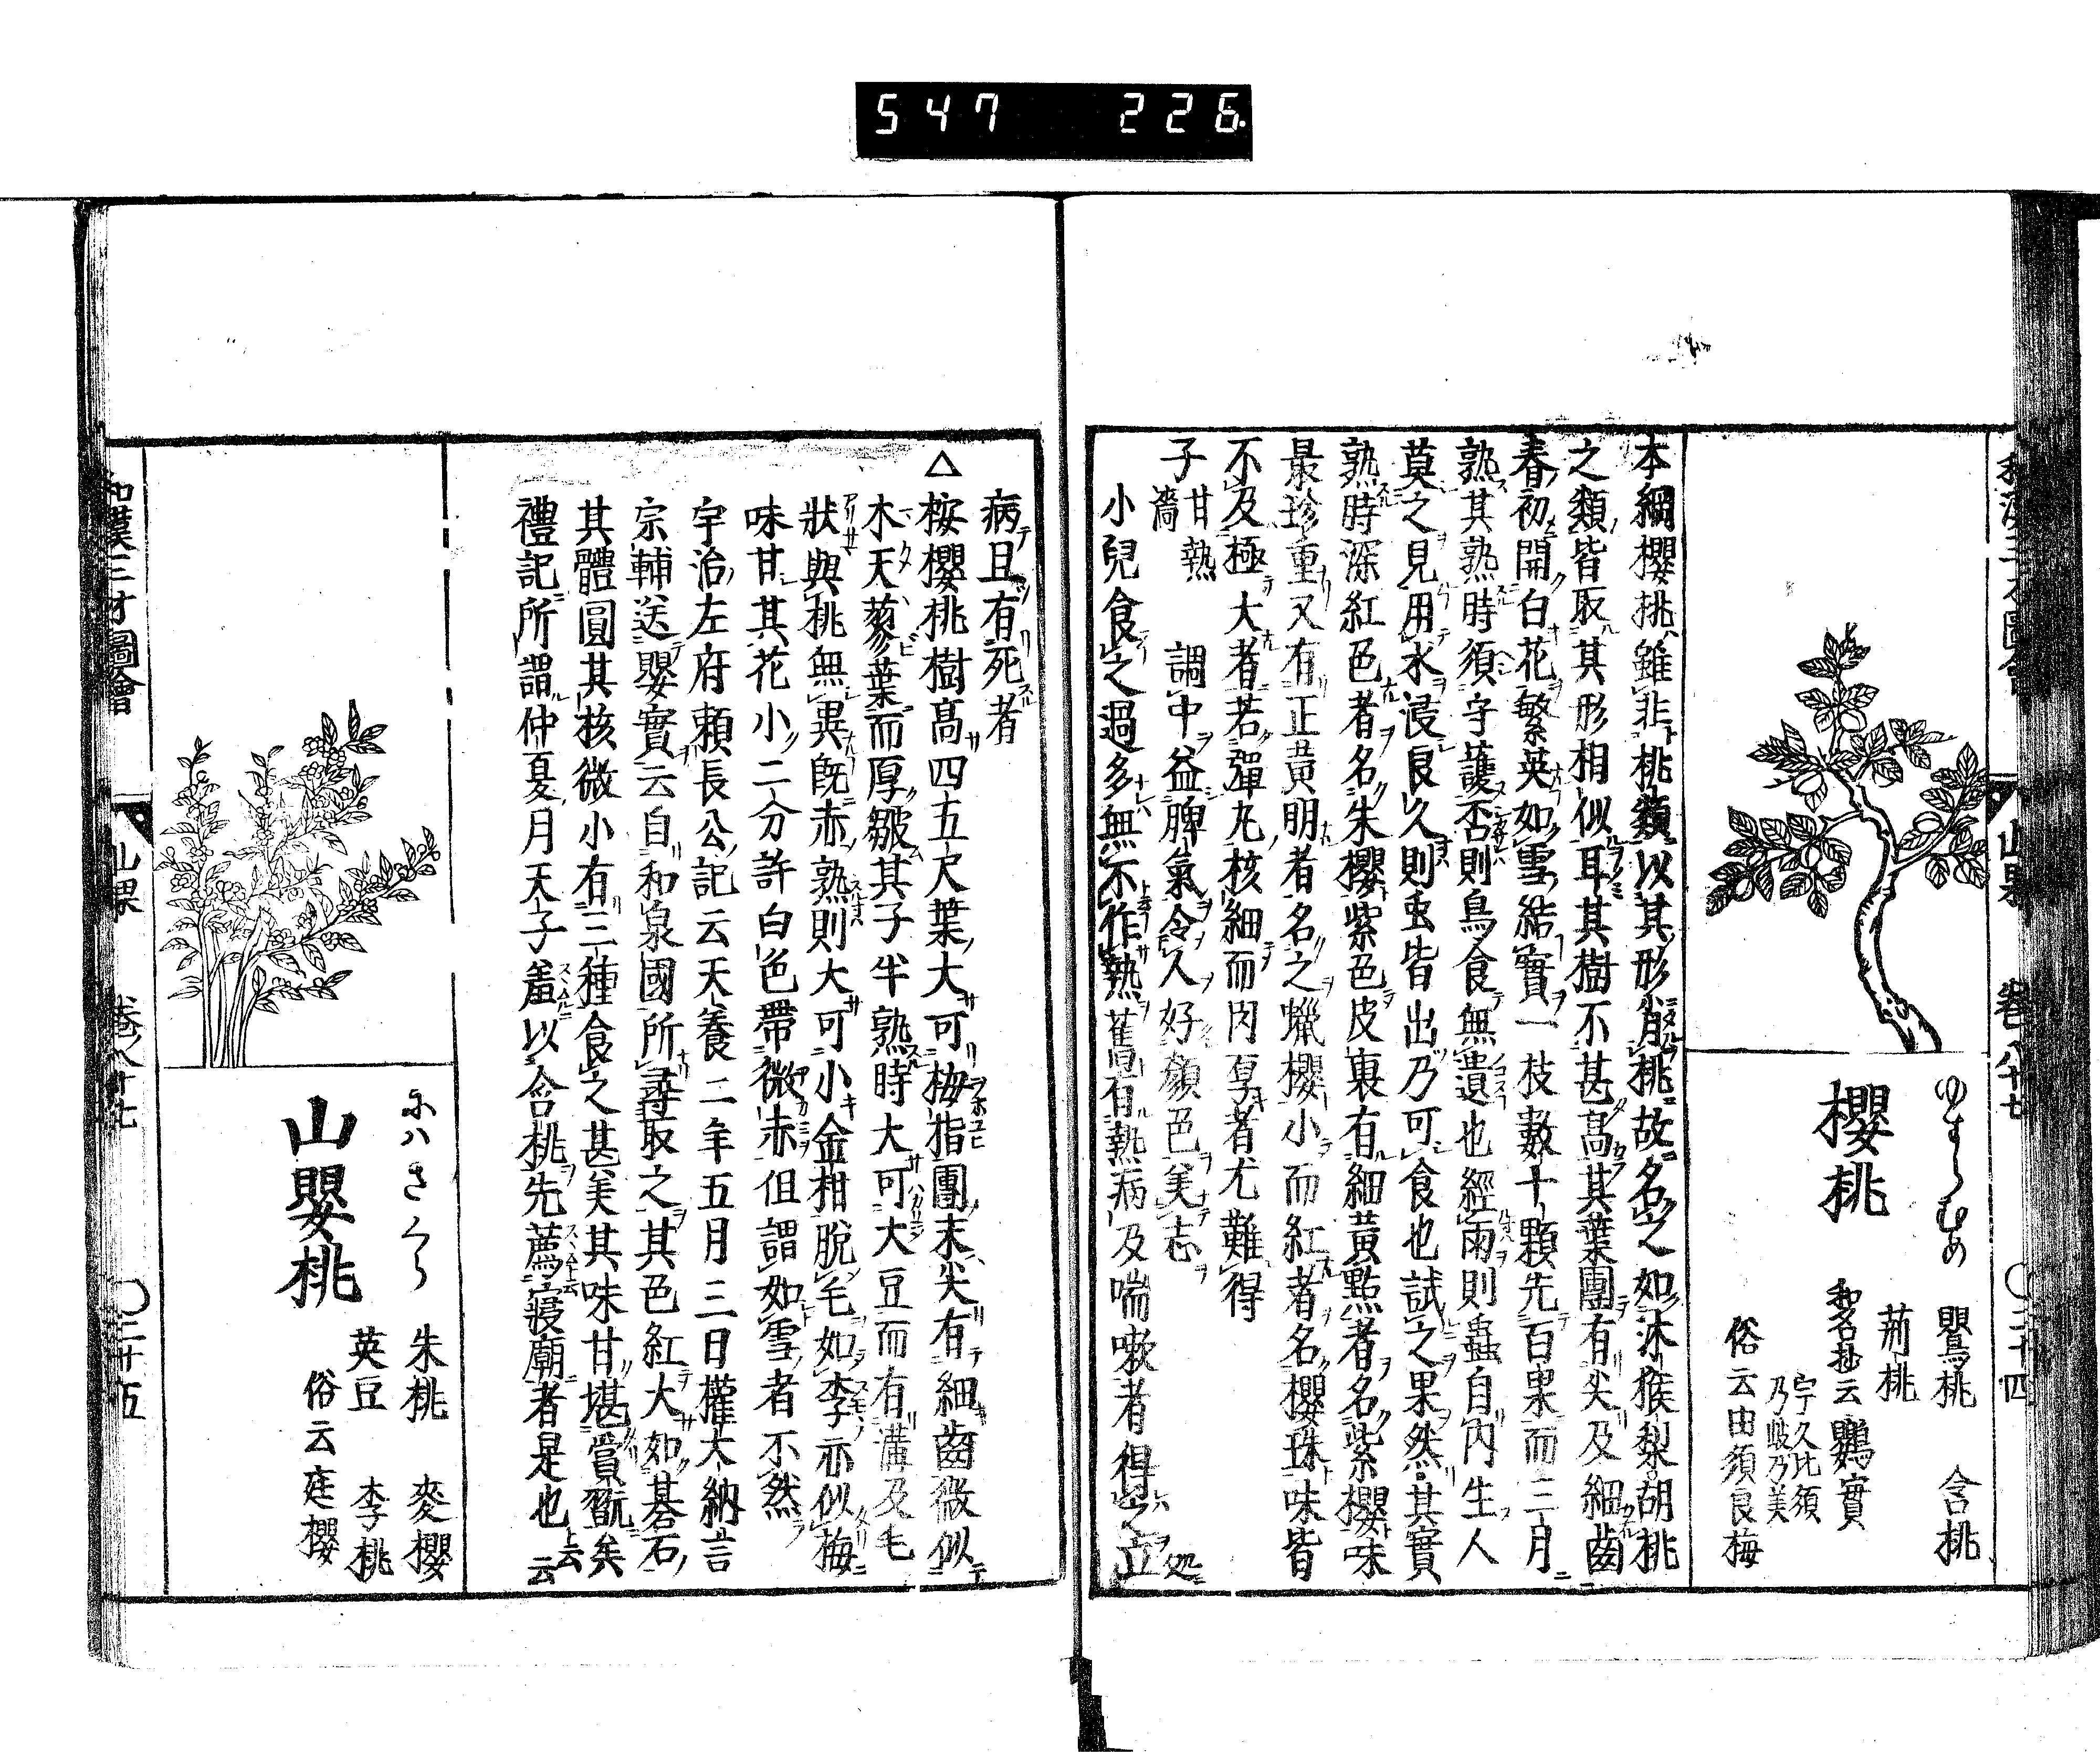 547 226
ゆすらむめ
櫻桃
鸎桃 含桃
荊桃
和名抄云鸎實
宇久比須
乃岐乃美
俗云由須良梅
本綱櫻桃雖非桃類以其形肖桃故名之如沐猴梨胡桃
之類皆取其形相似耳其樹不甚髙其葉團有尖及細齒
春初開白花繁英如雪結實一枝數十顆先百果而三月
熟其熟時須守護否則鳥食無遺也經雨則蟲自內生人
莫之見用水浸良久則虫皆出乃可食也試之果然其實
熟時深紅色者名朱櫻紫色皮裏有細黃點者名紫櫻味
最珍重又有正黃明者名之蠟櫻小而紅者名櫻珠味皆
不及極大者若彈丸核細而肉厚者尤難得
子 甘熱
濇 調中益脾氣令人好顏色美志
小兒食之過多無不作熱舊有熱病及喘嗽者得之立処
病且有死者
△桉櫻桃樹髙四五尺葉大可梅指團末尖有細齒微似
木天蓼葉而厚皺其子半熟時大可大豆而有溝及毛
狀與桃無異旣赤熟則大可小金柑脫毛如李亦似梅
味甘其花小二分許白色帶微赤但謂如雪者不然
宇治左府賴長公記云天養二年五月三日權大納言
宗輔送櫻實云自和泉國所尋取之其色紅大如碁石
其體圓其核微小有三種食之甚美其味甘堪賞翫矣
禮記所謂仲夏月天子羞以含桃先薦寢廟者是也上云云
にハさくら
山嬰桃
朱桃 麥櫻
英豆 李桃
俗云庭櫻
和漢三才圖會 山果 卷八十七 〇三十五